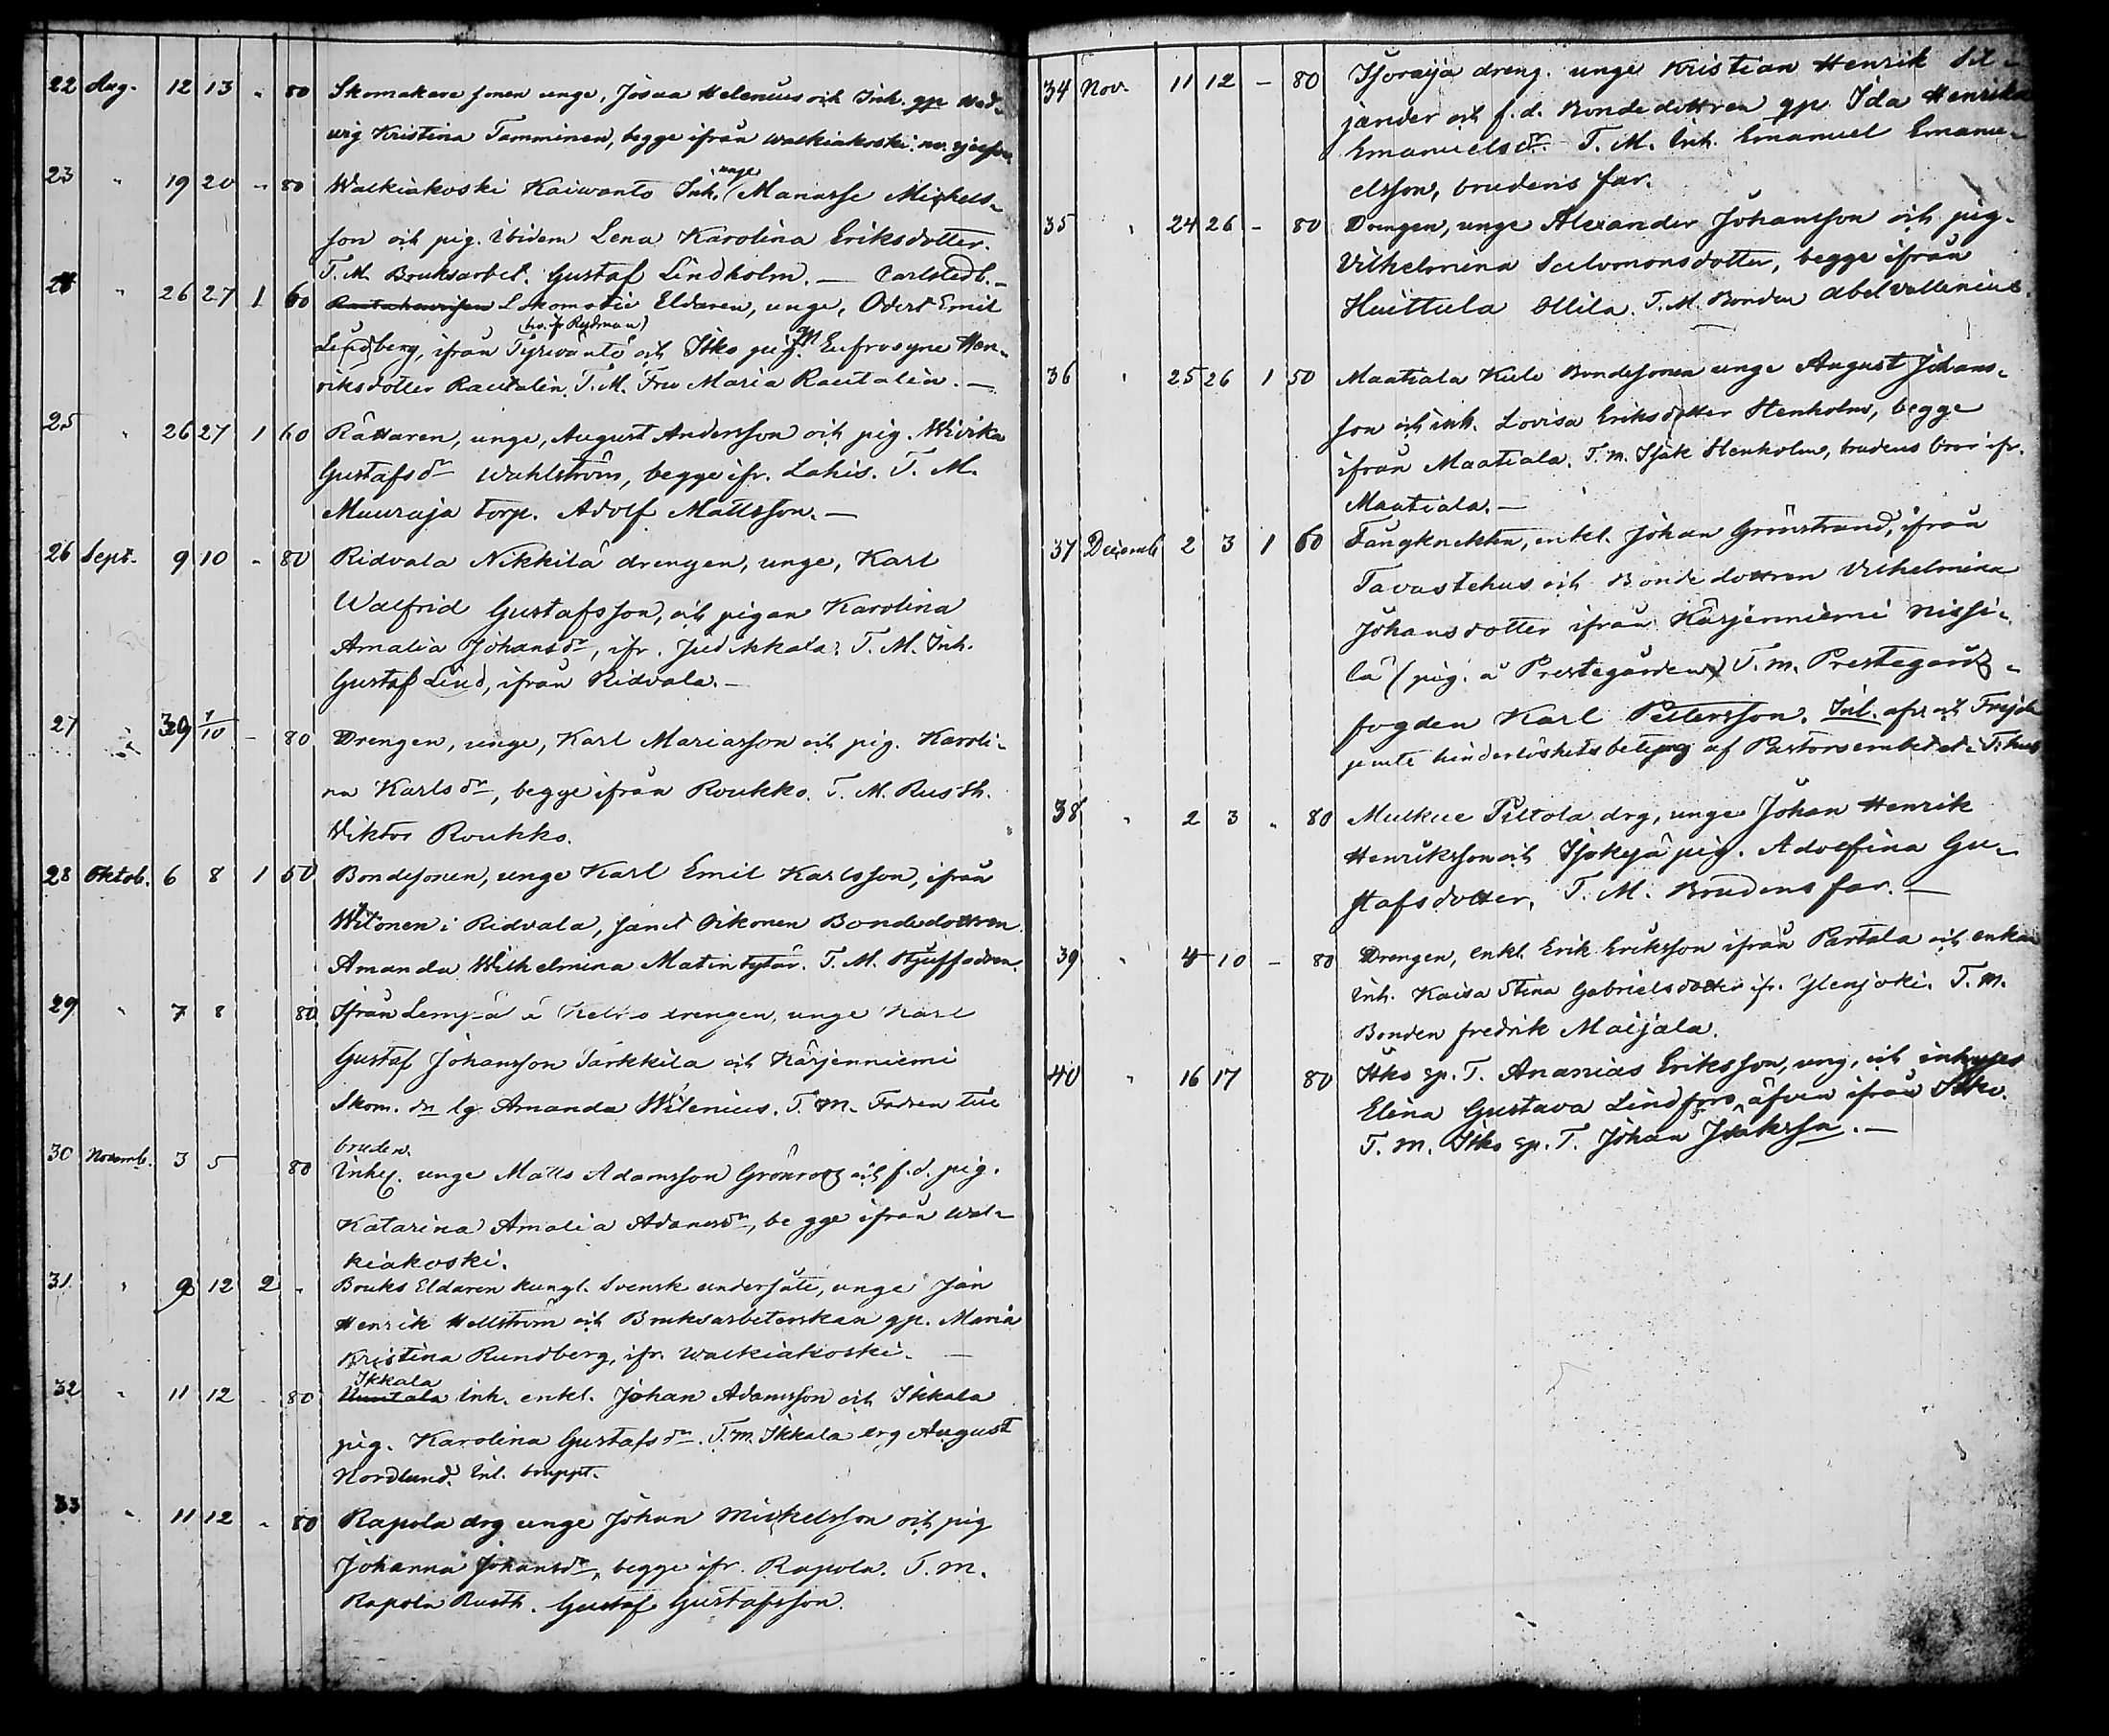 22 Aug. 12 13 - 80 Skomakare sonen unge, Josua Helenius och Inh. gp Hed-
wig Kristina Tamminen, begge ifrån Walkiakoski.
23 " 19 20 - 80 Walkiakoski Kaiwanto Inh. unge Manasse Mickels-
son och pig. ibidem Lena Karolina Eriksdotter.
T. M. Bruksarbet. Gustaf Lindholm. — Carlstedt. -
24 " 26 27 1 60 Lokomotiv Eldaren, unge, Odert Emil
Lindberg, ifrån Tyrwäntö och Itko pig. Eufrosyne Hen-
riksdotter Rautalin. T. M. Fru Maria Rautalin. —
25 " 26 27 1 60 Rättaren, unge, August Andersson och pig. Wivika
Gustafsdr Wahlström, begge ifr. Lahis. T. M.
Mauraja torp. Adolf Mattsson. —
26 Sept. 9 10 - 80 Ridvala Nikkilä drengen, unge, Karl
Walfrid Gustafsson, och pigan Karolina
Amalia Johansdr, ifr. Judikkala. T. M. Inh.
Gustaf Lind, ifrån Ridvala. —
27 " 30 1/10 - 80 Drengen, unge, Karl Mariasson och pig. Karoli-
na Karlsdr, begge ifrån Roukko. T. M. Rusth.
Wiktor Roukko.
28 Oktob. 6 8 1 50 Bondesonen, unge Karl Emil Karlsson, ifrån
Witonen i Ridvala, samt Oikonen Bondedottren
Amanda Wilhelmina Matintytär. T. M. Styffadren.
29 " 7 8 80 Ifrån Lempää drengen, unge Karl
Gustaf Johansson Tarkkila och Kärjenniemi
Skom. dr lg Amanda Wilenius. T. M. Fadren till
bruden.
30 Novemb. 3 5 80 Inhs. unge Matts Adamsson Grönroos och f.d. pig.
Katarina Amalia Adamsdr, begge ifrån Wal-
kiakoski.
31 " 9 12 2 - Bruks Eldaren kungl. Svensk undersåte, unge Jan
Henrik Hellström och Bruksarbeterskan gp. Maria
Kristina Rundberg, ifr. Walkiakoski. —
Ikkala
32 " 11 12 - 80 Uuntala inh. enkl. Johan Adamsson och Ikkala
pig. Karolina Gustafsdr. T. M. Ikkala drg August
Nordlund. Inl. bruppt.
33 " 11 12 - 80 Rapola drg unge Johan Mickelsson och pig
Johanna Johansdr, begge ifr. Rapola. T. M.
Rapola Rusth. Gustaf Gustafsson.
34 Nov. 11 12 - 80 dreng. unge Kristian Henrik Sil-
jander och f.d. Bondedottren gp. Ida Henrika
Emanuelsdr. T. M. Inh. Emanuel Emanu-
elsson, brudens far.
35 " 24 26 - 80 Drengen, unge Alexander Johansson och pig.
Vilhelmina Salomonsdotter, begge ifrån
Huittula Ollila. T. M. Bonden Abel Vallenius.
36 " 25 26 1 50 Maatiala Kulo Bondesonen unge August Johans-
son och inh. Lovisa Eriksdotter Stenholm, begge
ifrån Maatiala. T. M. Isak Stenholm, brudens bror ifr.
Maatiala. —
37 Decemb 2 3 1 60 Fångknekten, enkl. Johan Grönstrand, ifrån
Tavastehus och Bondedottren Vilhelmina
Johansdotter ifrån Kärjenniemi Nissi-
lä (pig. å Prestegården) T. M. Prestegårds-
fogden Karl Pettersson. Inl. afsr och Frejde
jemte hinderlöshets betyg af Pastorsembetet i T:hus
38 " 2 3 - 80 Mulkue Piltola drg, unge Johan Henrik
Henriksson och pig. Adolfina Gu-
stafsdotter. T. M. Brudens far. —
39 " 4 10 - 80 Drengen, enkl. Erik Eriksson ifrån Partala och enkan
inh. Kaisa Stina Gabrielsdotter ifr. Ylenjoki. T. M.
Bonden Fredrik Maijala.
40 " 16 17 80 Itko sp. T. Ananias Eriksson, ung, och inhyses
Elina Gustava Lindfors, äfven ifrån Itko.
T. M. Itko sp. T. Johan Isaksson. —